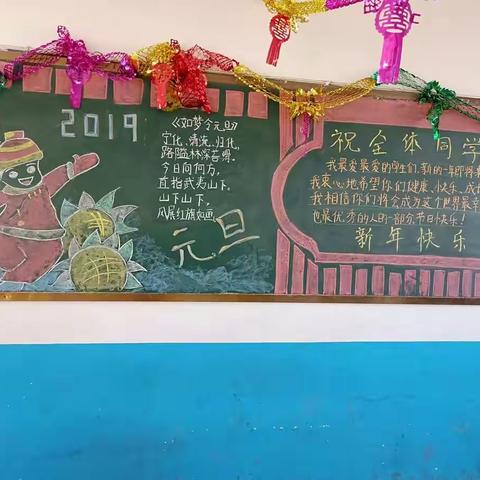 2019
《如梦令元旦》
宁化、清流、归化,
路隘林深苔滑。
今日向何方,
直指武夷山下。
山下山下,
风展红旗如画。
元旦
祝全体同学
我最爱最爱的学生们,新的一年即将来
我衷心地希望你们健康、快乐、成
我相信你们将会成为这个世界最幸
也最优秀的人的一部分节日快乐!
新年快乐